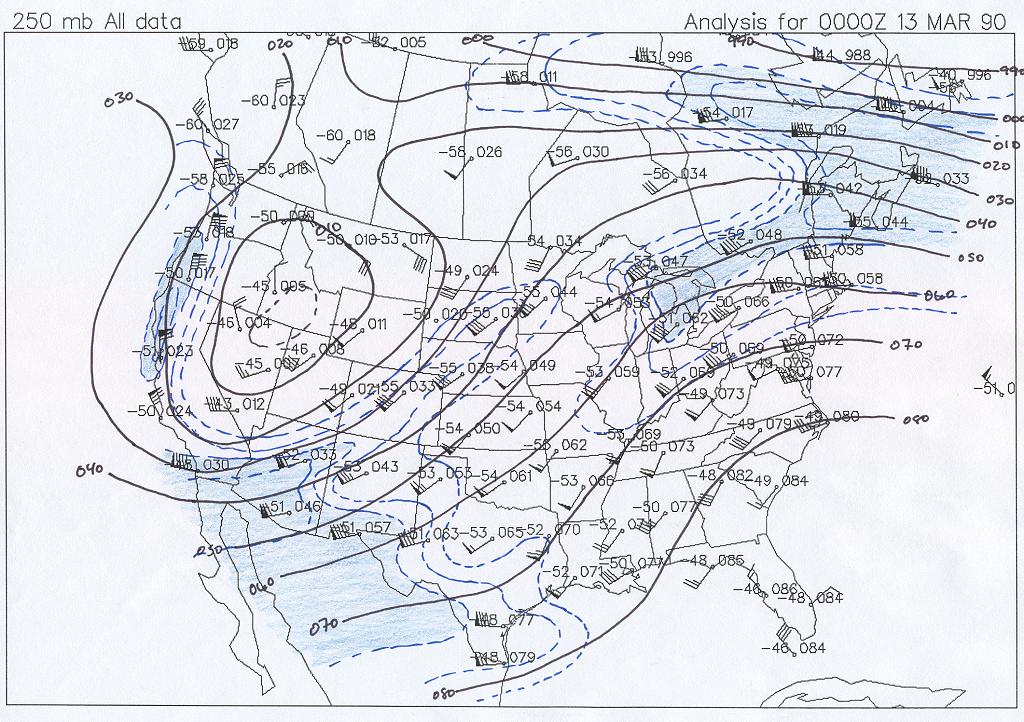 250 mb All data
Analysis for 0000Z 13 MAR 90
020
010
-52 005
000
990
-59 018
-53 996
-44 988
-40 996
990
-58 011
030
-60 023
-54 017
004
000
-60 027
-60 018
019
010
-58 026
-56 030
020
-55 016
-58 025
-56 034
033
030
042
-50 009
-55 044
040
010
-53 018
-50 010
-53 017
-54 034
-52 048
-51 058
050
-50 017
-49 024
-53 047
-45 005
044
-50 058
060
-54 053
-50 066
-46 004
-48 011
-50 020
-55
062
-51 023
-46 008
-50 069
-50 072
070
-45 007
-55 038
-54 049
-53 059
-52 065
-49 075
077
-51 0
-49 021
-55 033
-49 073
-50 024
-43 012
-54 054
-49 080
080
-54 050
-49 079
-53 069
-55 062
-50 073
040
030
-52 033
-53 043
-53 053
-54 061
-53 066
-48 082
-49 084
-51 046
-50 077
-51 057
-51 063
-53 065
-52 070
-52 07
050
-50 077
-48 085
060
-52 071
-46 086
-48 084
070
-48 077
-46 084
-48 079
080